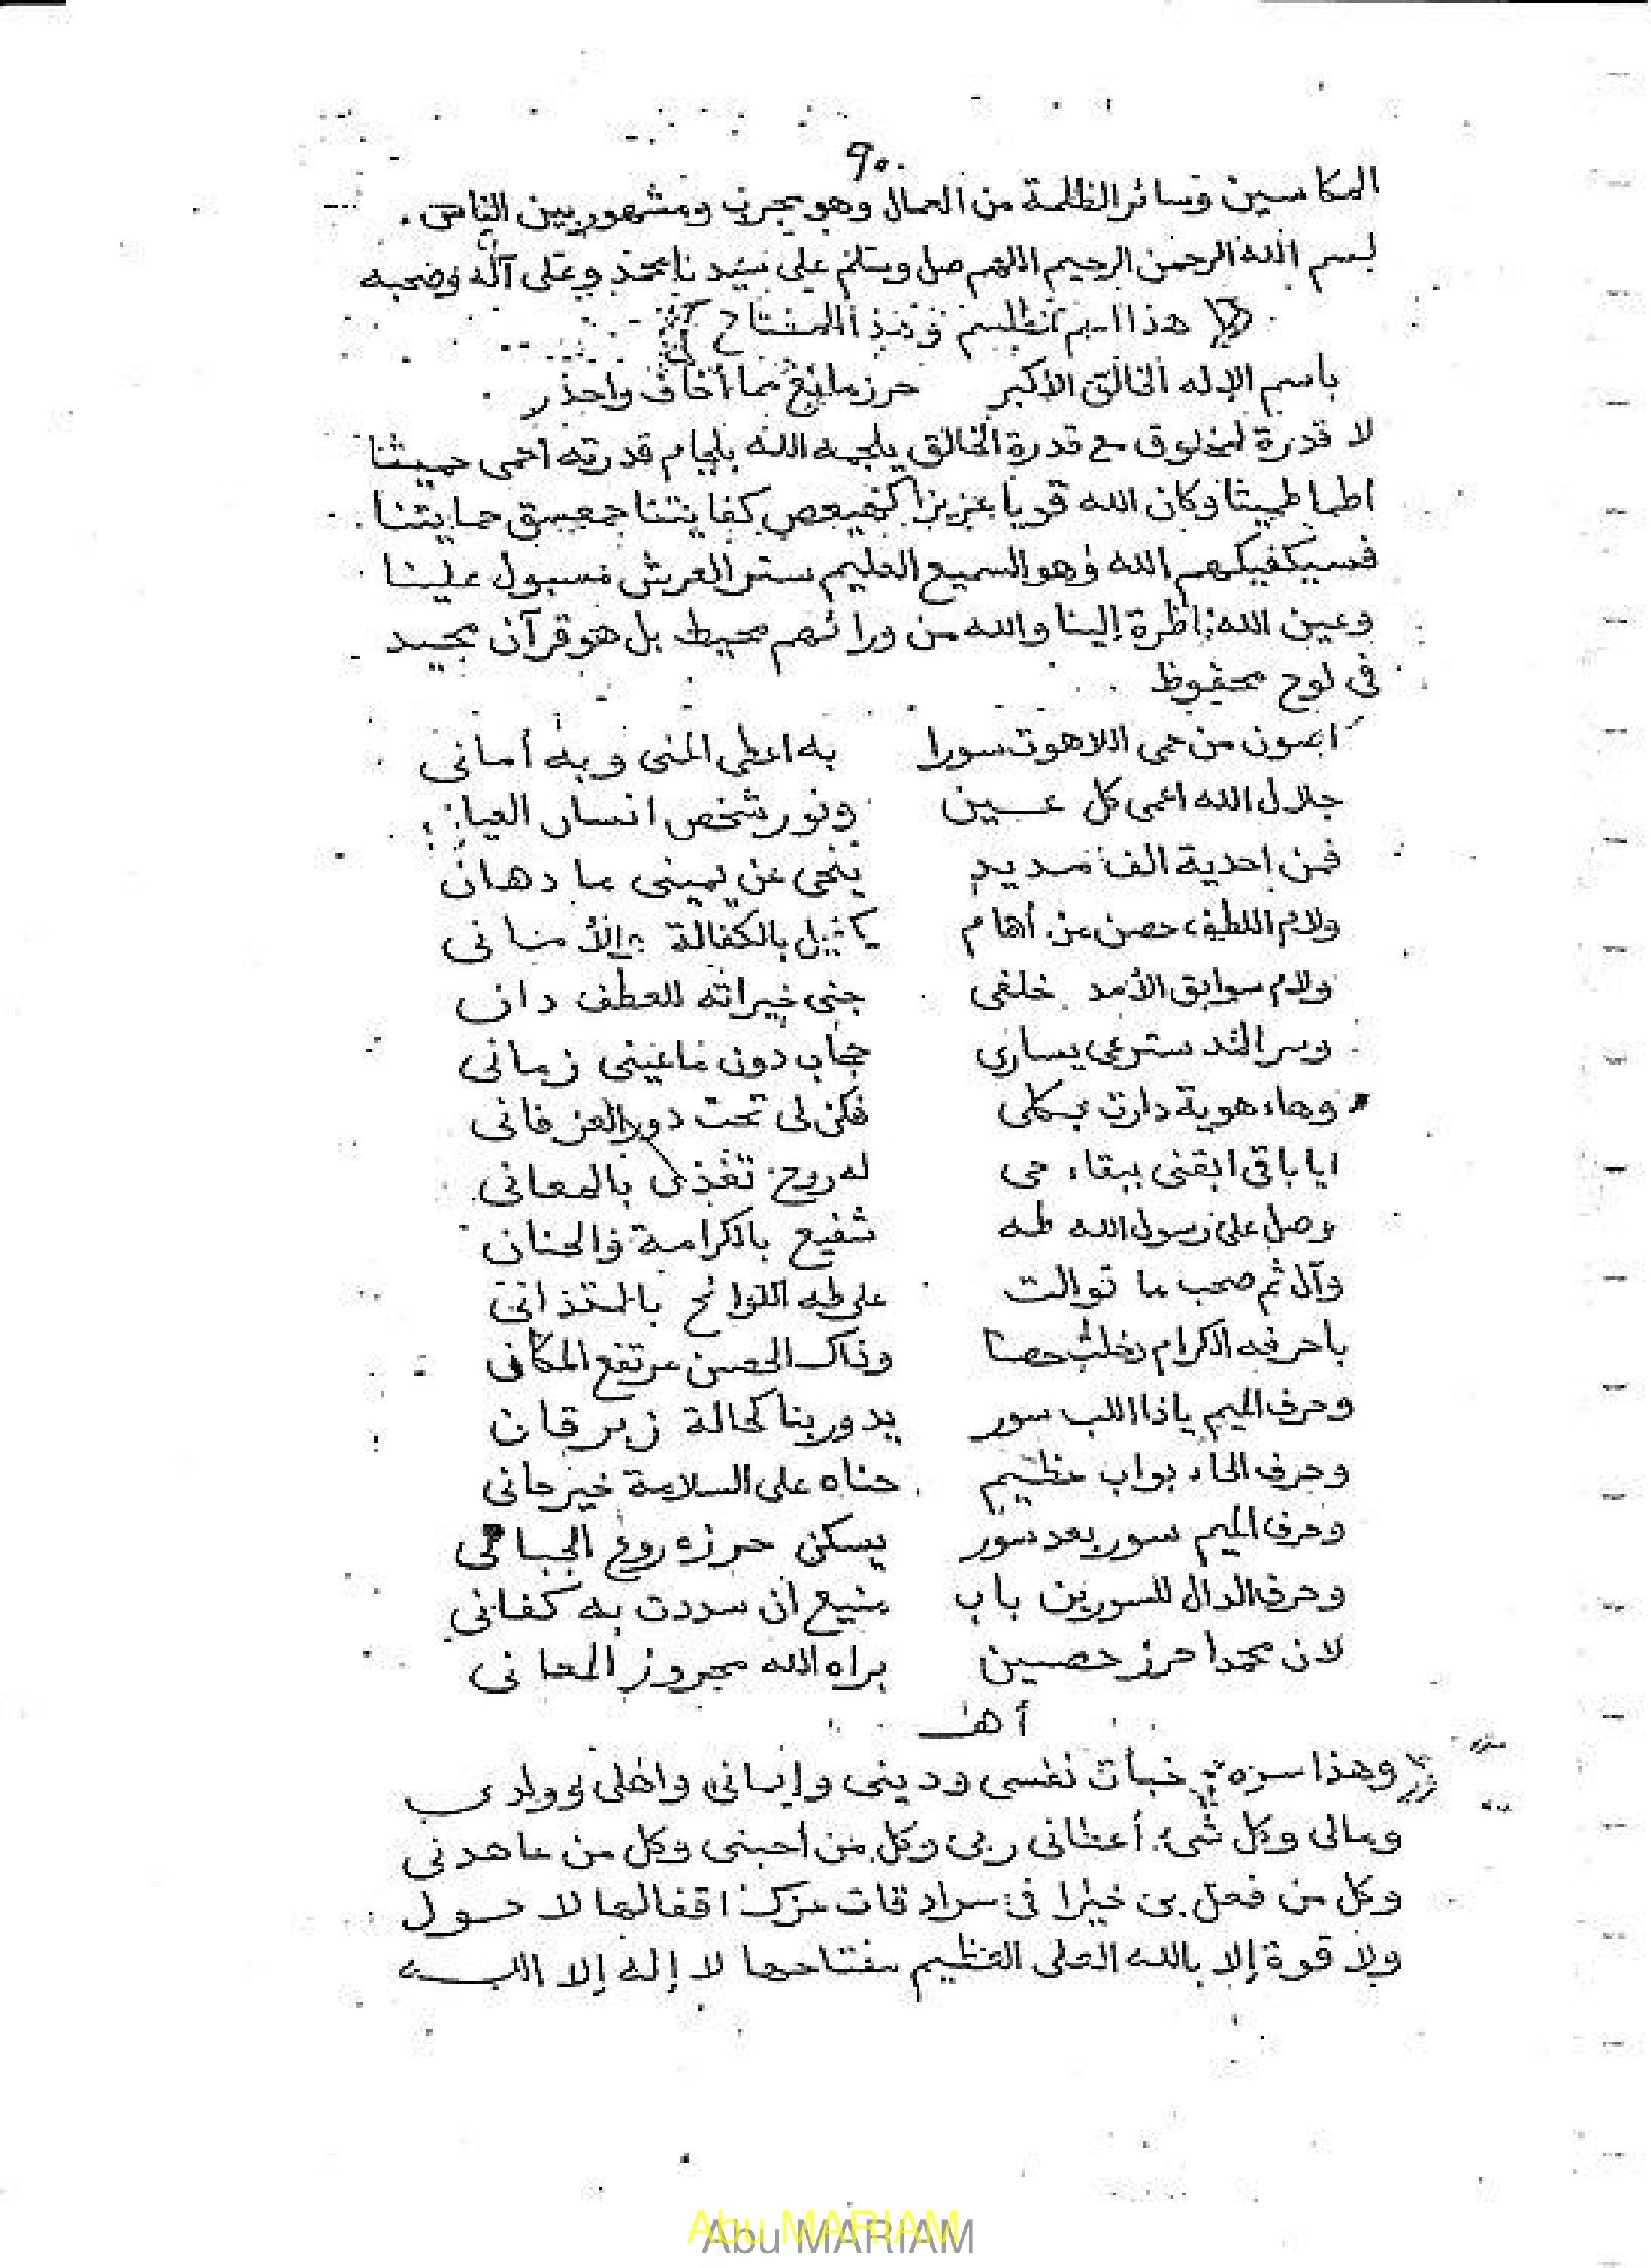 ٩٠
المكاسين وسائر الظلمة من العمال وهو مجرب ومشهور بين الناس.
بسم الله الرحمن الرحيم اللهم صل وسلم على سيدنا محمد وعلى آله وصحبه
هذا
باسم الإله الخالق الأكبر حرز مانع مما أخاف واحذر
لا قدرة لمخلوق مع قدرة الخالق يلجمه الله بلجام قدرته احمى حميثا
اطما طميثا وكان الله قويا عزيزا كهيعص كفايتنا حمعسق حمايتنا
فسيكفيكهم الله وهو السميع العليم ستر العرش مسبول علينا
وعين الله ناظرة إلينا والله من ورائهم محيط بل هو قرآن مجيد
فى لوح محفوظ
من حمى اللاهوت سورا به اعطى المنى وبه أمانى
جلال الله اعمى كل عين ونور شخص انسان العيان
فمن احدية الف مديد ينحى عن يمينى ما دهان
ولام اللطف حصن من أمام بالكفالة والأمانى
ولام سوابق الأمد خلفى جنى خيراته للعطف دان
وسر ستر عن يسارى حجاب دون زمانى
وهاء هوية دارت بكلى فكن لى تحت دور العز فانى
ايا باقى ابقنى ببقاء حى له روح تغذى بالمعانى
وصل على رسول الله طه شفيع بالكرامة والحنان
وآل ثم صحب ما توالت على طه اللوائح
باحرفه الكرام دخلت حصنا وذاك الحصن مرتفع المكانى
وحرف الميم ياذا اللب سور يدور بنا كحالة زبرقان
وحرف الحاء بواب عظيم حناه على السلامة خير حانى
وحرف الميم سور بعد سور يسكن حرزه روع
وحرف الدال للسورين باب منيع ان سددت به كفانى
لان محمدا حرز حصين براه الله المعانى
أهـ
وهذا سره خبأت نفسى ودينى وإيمانى واهلى وولدى
ومالى وكل شىء أعطانى ربى وكل من أحبنى وكل من عاهدنى
وكل من فعل بى خيرا فى سرادقات عزك اقفالها لا حول
ولا قوة إلا بالله العلى العظيم مفتاحها لا إله إلا الله
Abu MARIAM
Abu MARIAM